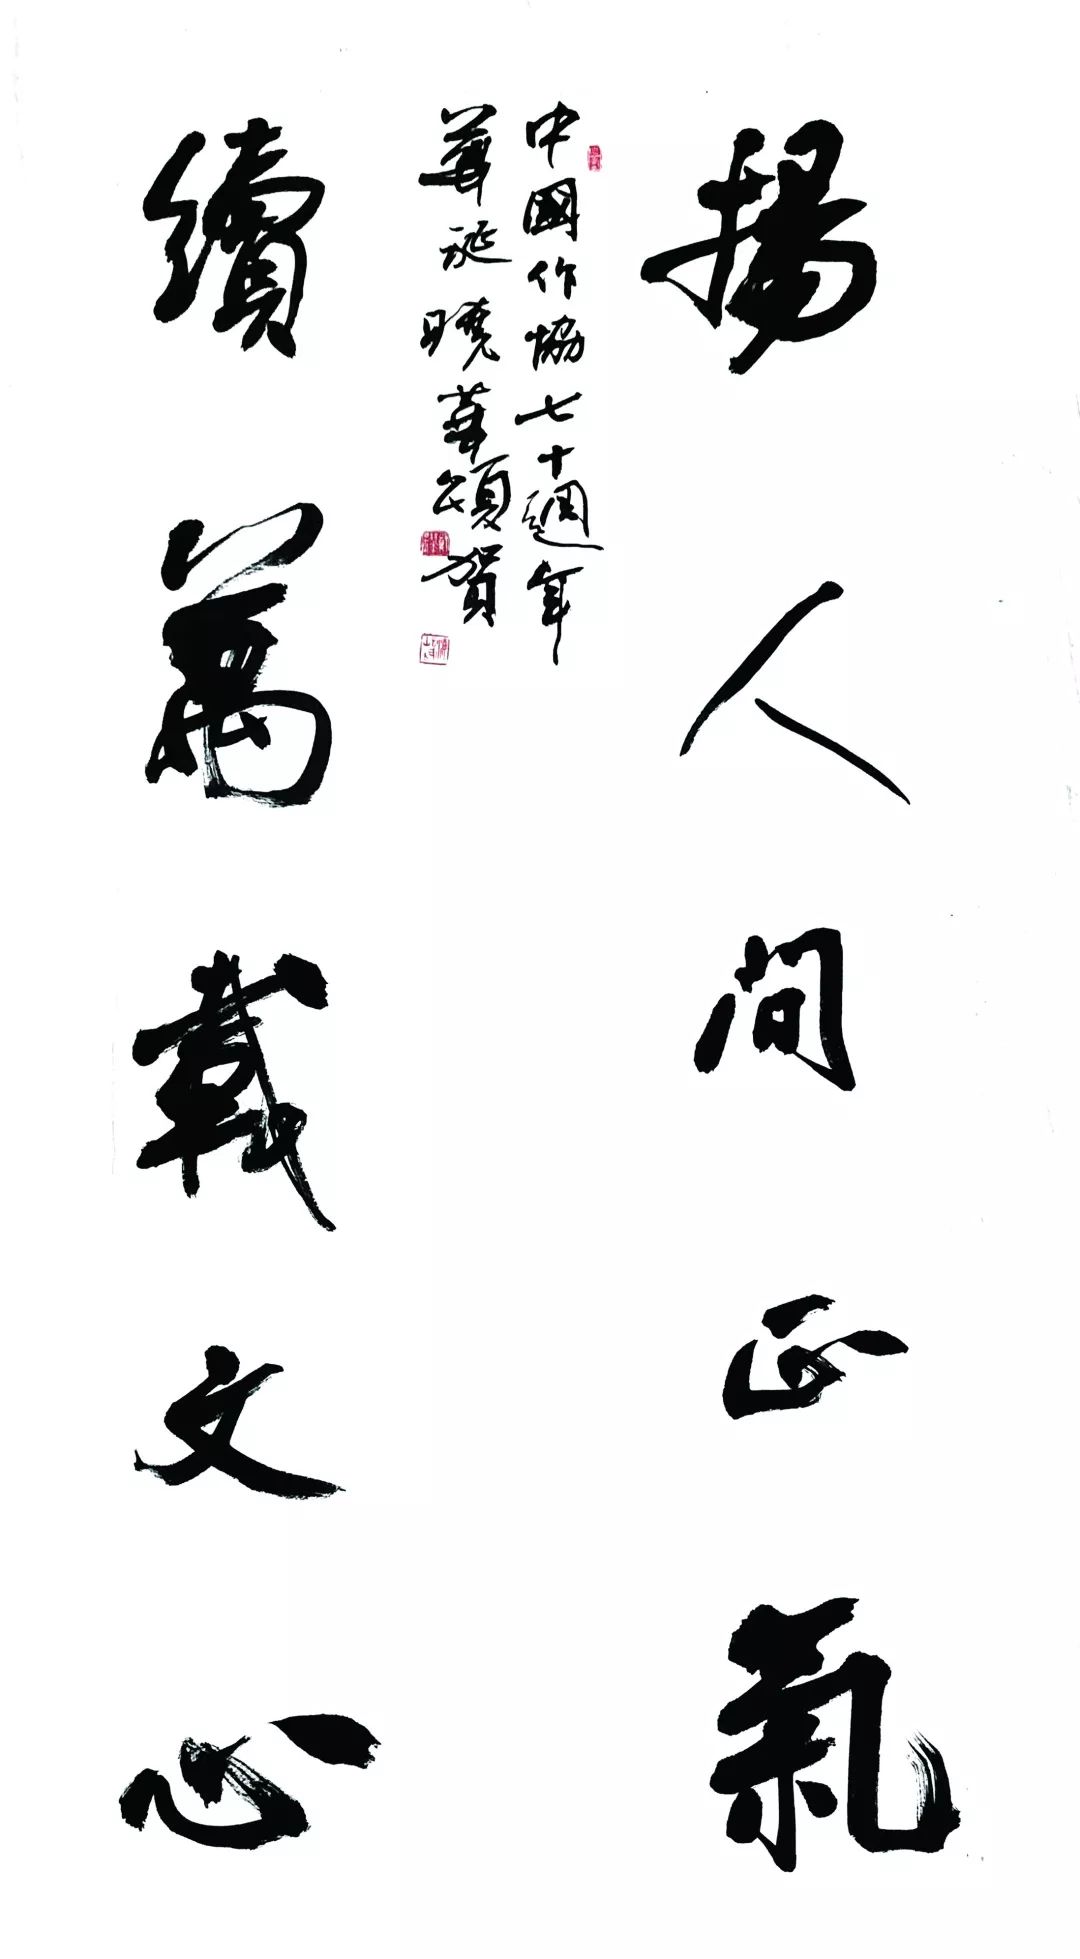 揚人间正氣
中國作協七十週年
華誕曉華頌賀
續萬載文心